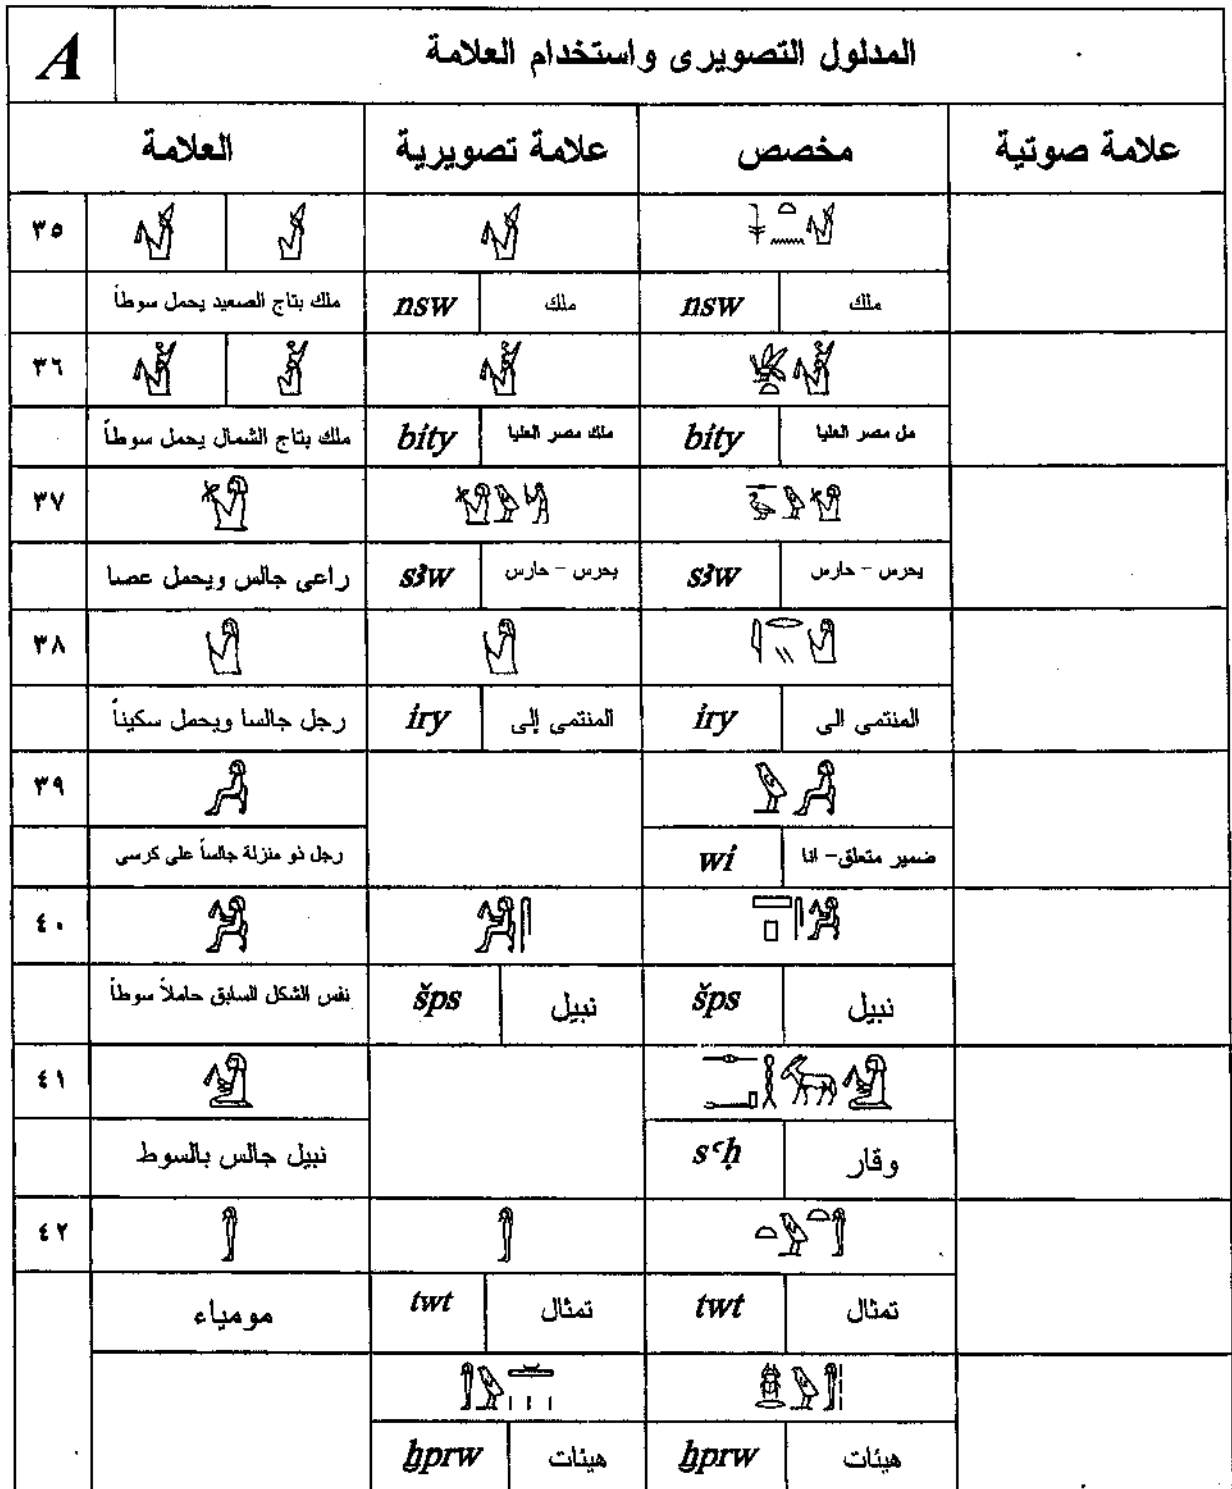 A المدلول التصويرى واستخدام العلامة
العلامة علامة تصويرية مخصص علامة صوتية
٣٥
ملك بتاج الصعيد يحمل سوطاً nsw ملك nsw ملك
٣٦
ملك بتاج الشمال يحمل سوطاً bity ملك مصر العليا bity مل مصر العليا
٣٧
راعى جالس ويحمل عصا sꜣw يحرس - حارس sꜣw يحرس - حارس
٣٨
رجل جالسا ويحمل سكيناً iry المنتمى إلى iry المنتمى الى
٣٩
رجل ذو منزلة جالساً على كرسى wi ضمير متعلق- انا
٤٠
نفس الشكل السابق حاملاً سوطاً šps نبيل šps نبيل
٤١
نبيل جالس بالسوط sꜥḥ وقار
٤٢
مومياء twt تمثال twt تمثال
ḫprw هيئات ḫprw هيئات